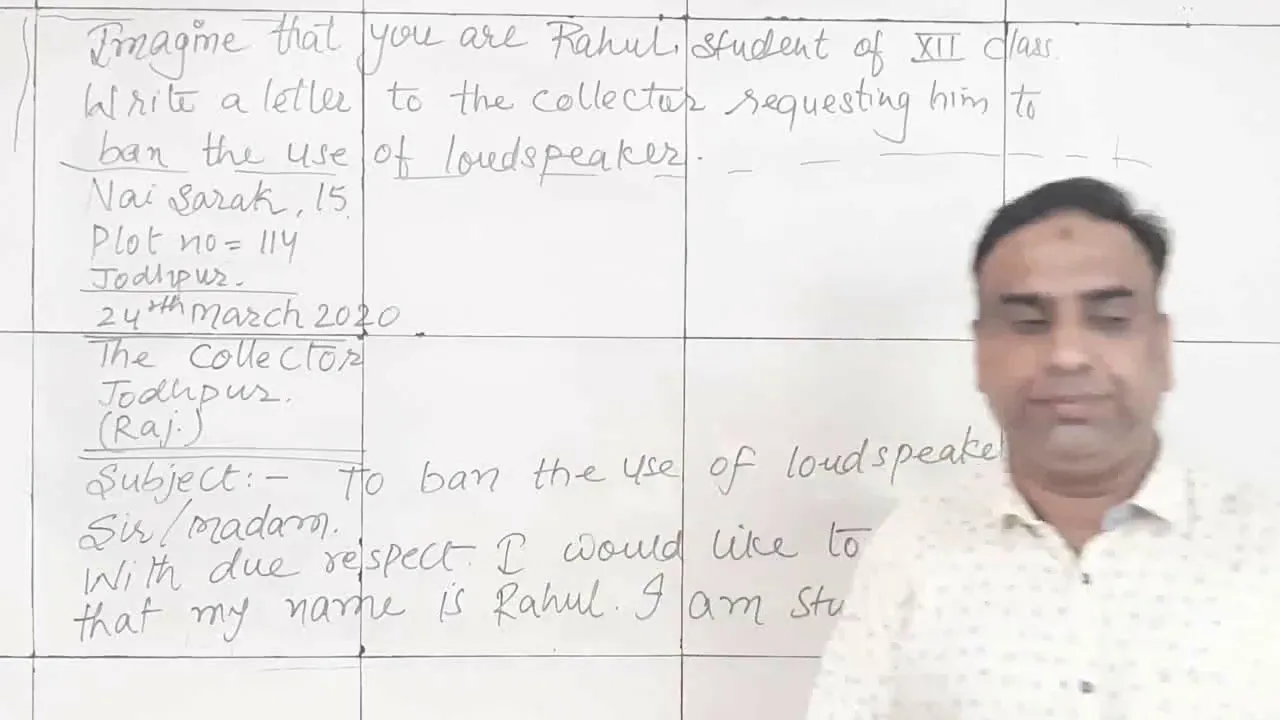 Imagine that you are Rahul, student of XII class.
Write a letter to the collector requesting him to
ban the use of loudspeaker.
Nai Sarak, 15.
Plot no = 114
Jodhpur.
24rth March 2020
The Collector
Jodhpur.
(Raj.)
Subject:- To ban the use of loudspeake
Sir/madam.
With due respect. I would like to
that my name is Rahul. I am stu